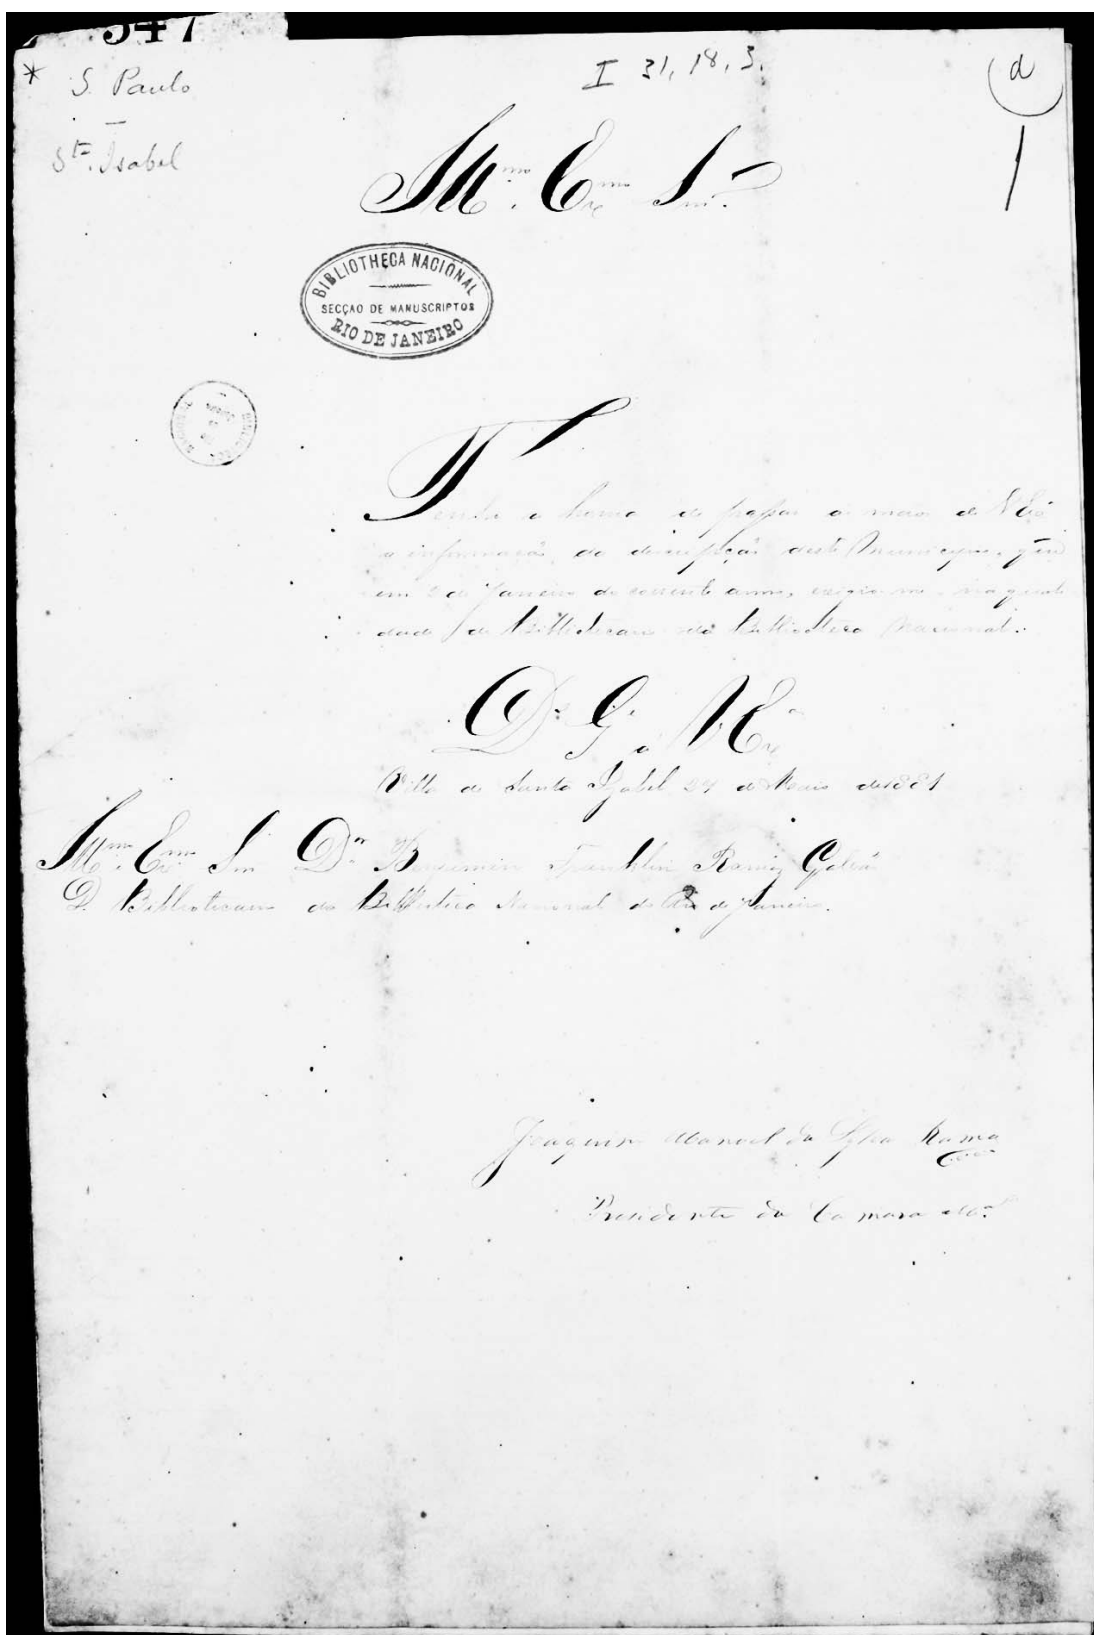 547
* S. Paulo
I 31, 18, 3.
d
Sta. Isabel
1
Illmo. Exmo. Snr.
BIBLIOTHECA NACIONAL
SECÇÃO DE MANUSCRIPTOS
RIO DE JANEIRO
Tenho a honra de passar as maos de V Exa
a informação da descripção deste Municipio, que
em 2 de Janeiro do corrente anno, exigio-me, na quali
dade de Bibliothecario da Bibliotheca Nacional.
Ds. G. a V. Exa
Villa de Santa Izabel 27 de Maio de 1881
Illmo. Exmo. Snr Dor. Benjamin Franklin Ramiz Galvão
D. Bibliothecario da Bibliotheca Nacional do Rio de Janeiro.
Joaquim Manoel da Sylva Rama
Presidente da Camara Mal.